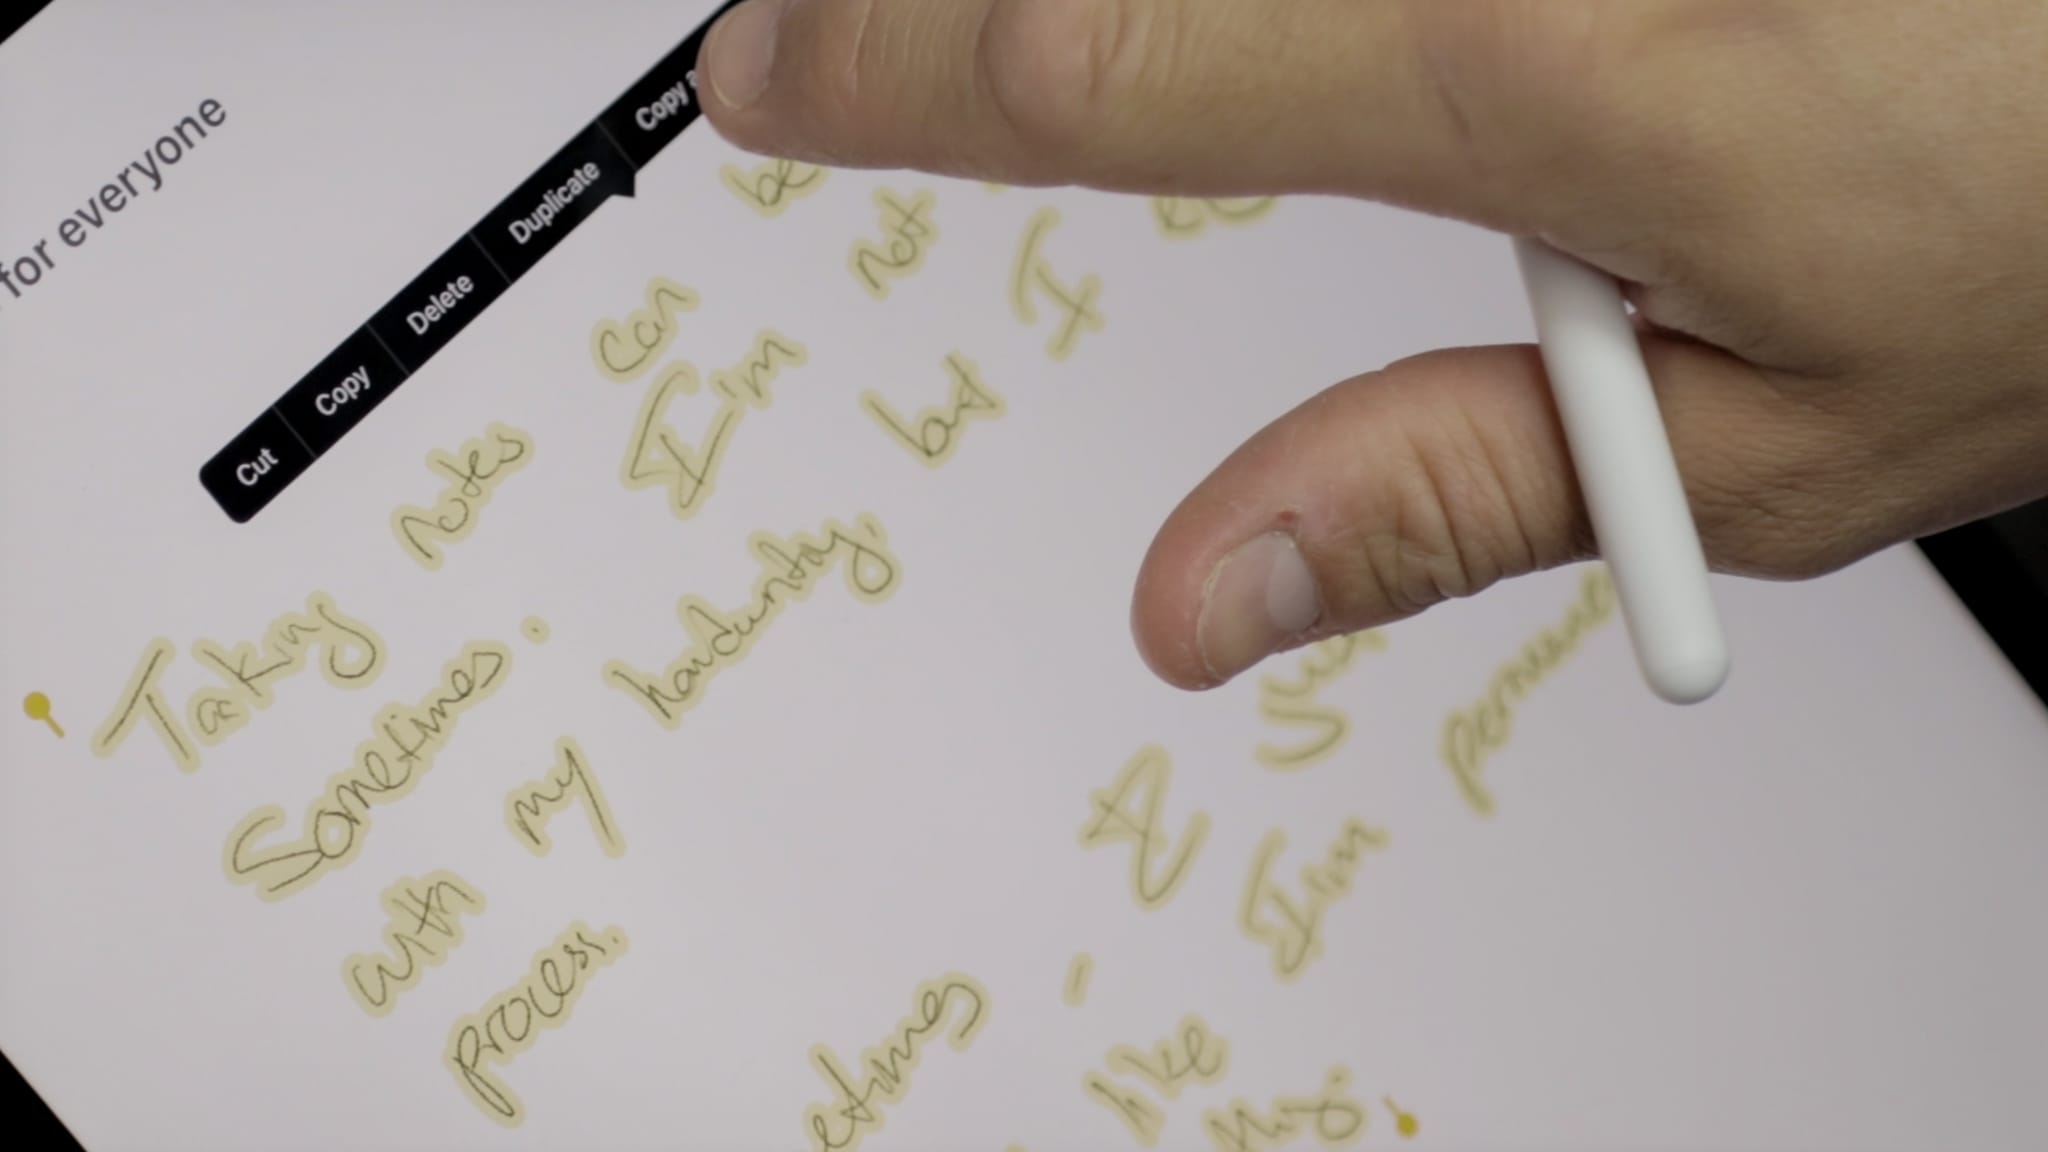 for everyone
Cut Copy Delete Duplicate Copy
Taking notes can be
Sometimes. I'm not
with my handwriting. but I
process.
etimes - I
like I'm